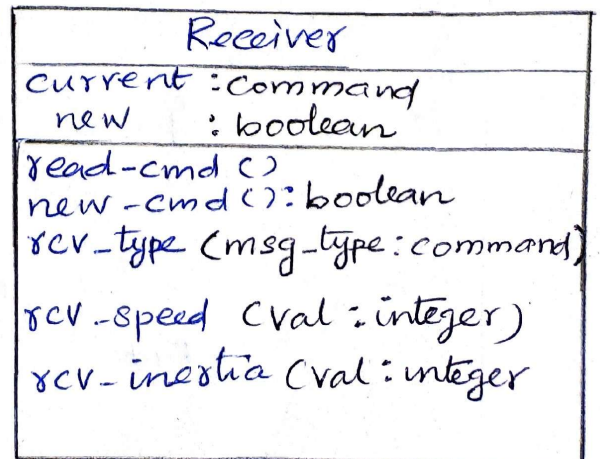 Receiver
current : command
new : boolean
read-cmd ()
new-cmd () : boolean
rcv_type (msg_type : command)
rcv-speed (val : integer)
rcv-inertia (val : integer